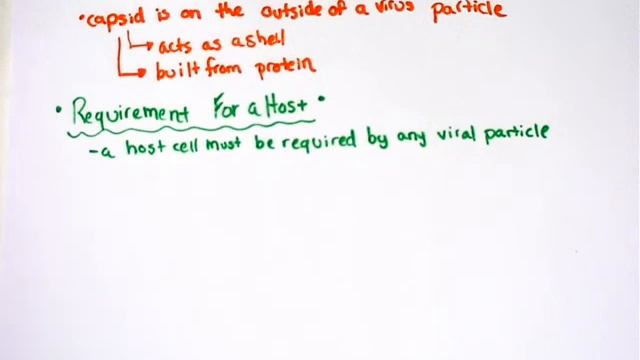 •capsid is on the outside of a virus particle
acts as a shell
built from protein
• Requirement For a Host •
- a host cell must be required by any viral particle